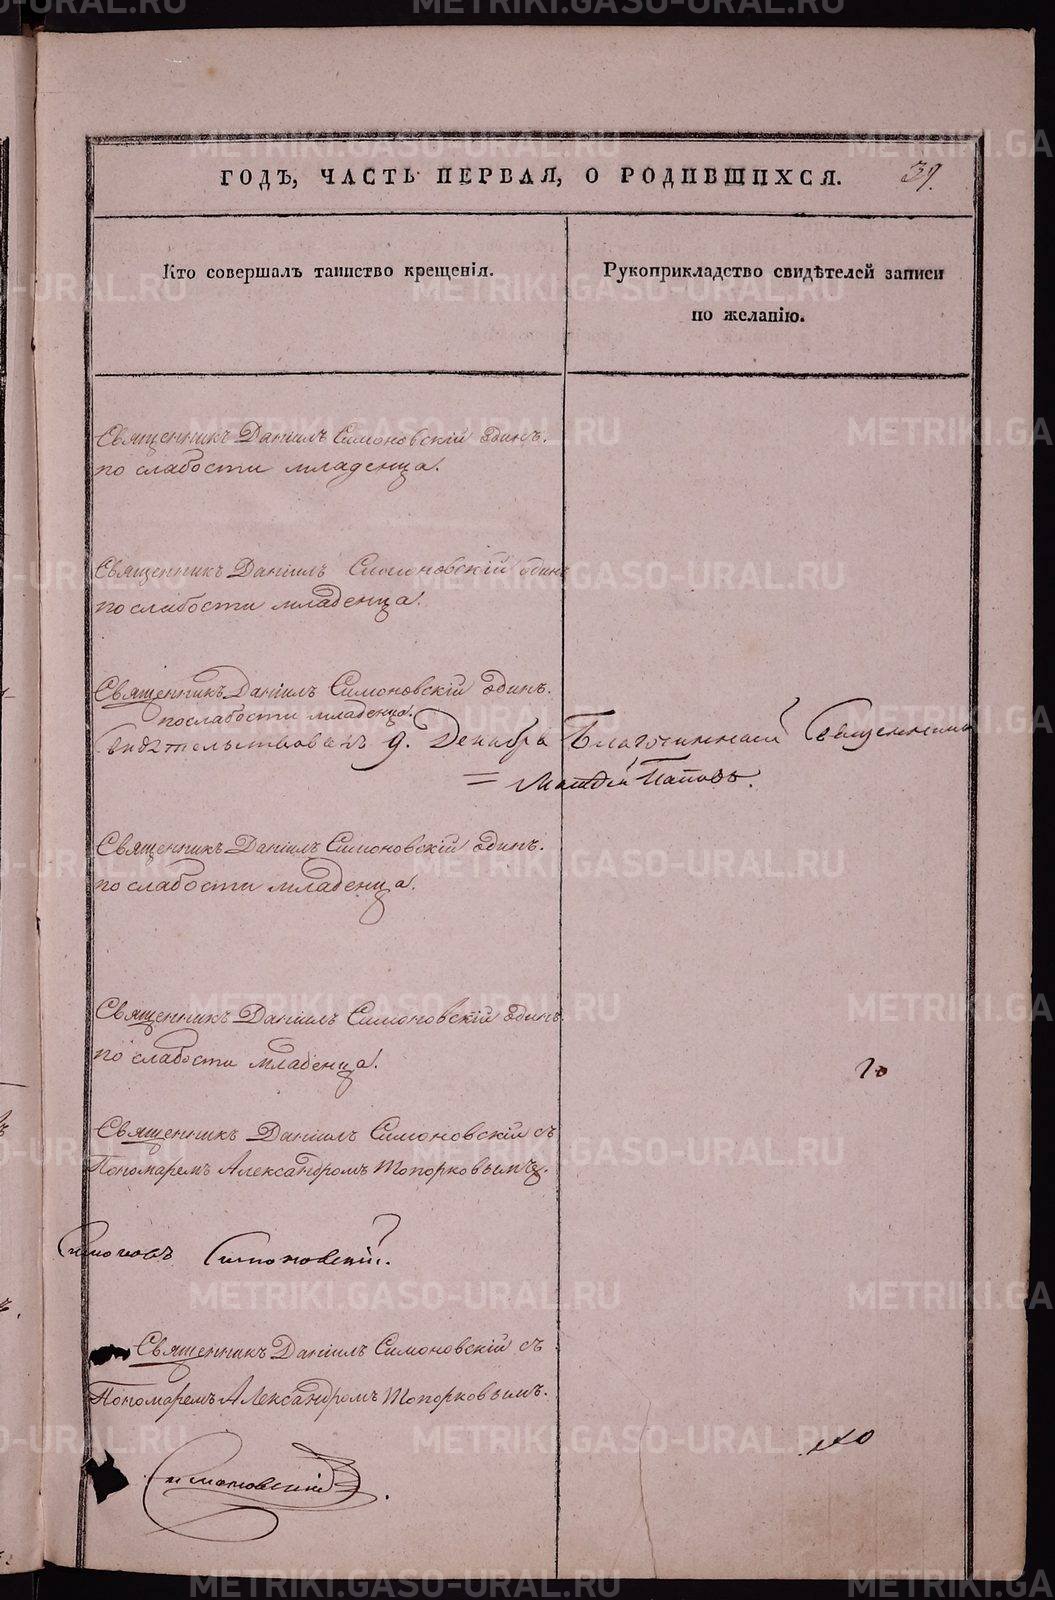 ГОДЪ, ЧАСТЬ ПЕРВАЯ, О РОДИВШИХСЯ.
39.
Кто совершалъ таинство крещенія.
Рукоприкладство свидѣтелей записи
по желанію.
Священникъ Даніилъ Симоновскій одинъ.
по слабости младенца.
Священникъ Даніилъ Симоновскій одинъ
по слабости младенца.
Священникъ Даніилъ Симоновскій одинъ.
по слабости младенца.
9. Декабря Благочинный Священникъ
= Матвій Поповъ.
Священникъ Даніилъ Симоновскій одинъ.
по слабости младенца.
Священникъ Даніилъ Симоновскій одинъ.
по слабости младенца.
Священникъ Даніилъ Симоновскій съ
Пономаремъ Александромъ Топорковымъ.
Симоновскій.
Священникъ Даніилъ Симоновскій съ
Пономаремъ Александромъ Топорковымъ.
Симоновскій.
METRIKI.GASO-URAL.RU